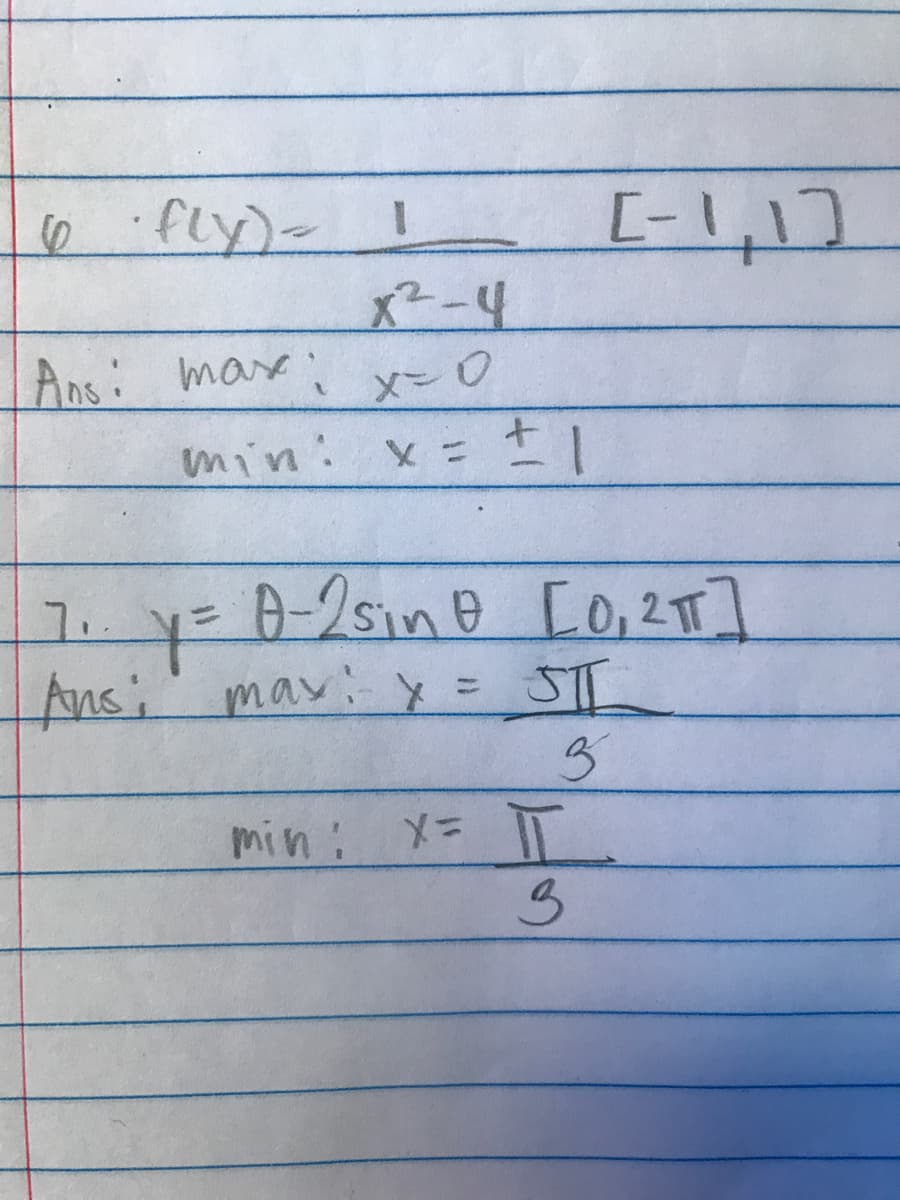 6 · f(y) = 1 [-1,1]
x²-4
Ans: max: x=0
min: x = ±1
7. y = θ-2sinθ [0,2π]
Ans: max: x = 5π
3
min: x= π
3